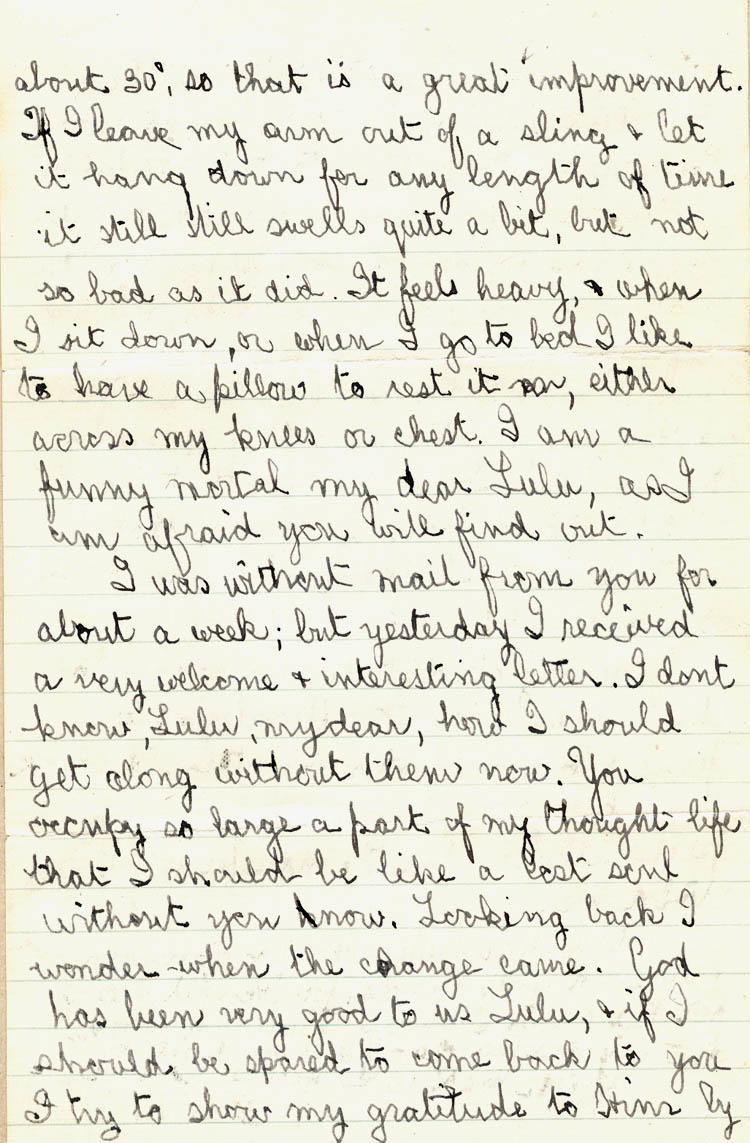 about 30°, so that is a great improvement.
If I leave my arm out of a sling & let
it hang down for any length of time
it still still swells quite a bit, but not
so bad as it did. It feels heavy, & when
I sit down, or when I go to bed I like
to have a pillow to rest it on, either
across my knees or chest. I am a
funny mortal my dear Lulu, as I
am afraid you will find out.
I was without mail from you for
about a week; but yesterday I received
a very welcome & interesting letter. I dont
know, Lulu, my dear, how I should
get along without them now. You
occupy so large a part of my thought life
that I should be like a lost soul
without you know. Looking back I
wonder when the change came. God
has been very good to us Lulu, & if I
should be spared to come back to you
I try to show my gratitude to Him by